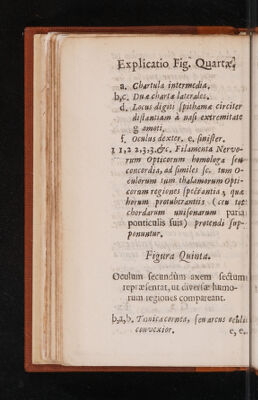 Explicatio Fig. Quartæ.
a. Chartula intermedia.
b,c. Duæ chartæ laterales.
d. Locus digiti spithamæ circiter
distantiam à nasi extremitate
g amoti.
f. Oculus dexter. e. sinister.
1 1, 2 2, 3, 3. &c. Filamenta Nervo-
rum Opticorum homologa seu
concordia, ad similes sc. tum O-
culorum tum thalamorum Opti-
corum regiones spectantia, quæ
horum protuberantiis (ceu tot
chordarum unisonarum paria
ponticulis suis) protendi sup-
ponuntur.
Figura Quinta.
Oculum secundùm axem sectum
repræsentat, ut diversæ humo-
rum regiones compareant.
b,a,b. Tunica cornea, seu arcus oculi
convexior.
e, e,